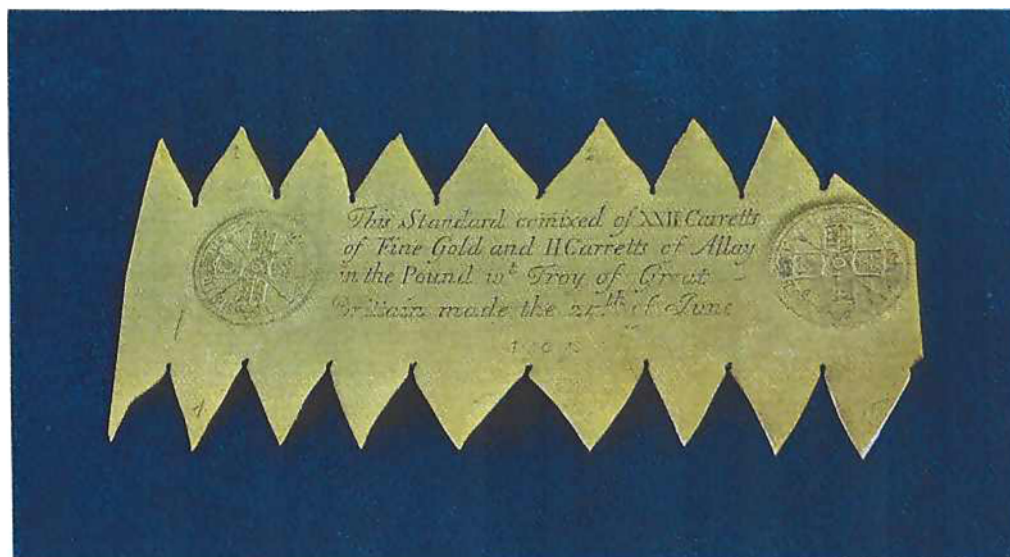 This Standard comixed of XXII Carretts
of Fine Gold and II Carretts of Allay
in the Pound wt Troy of Great
Britain made the of June